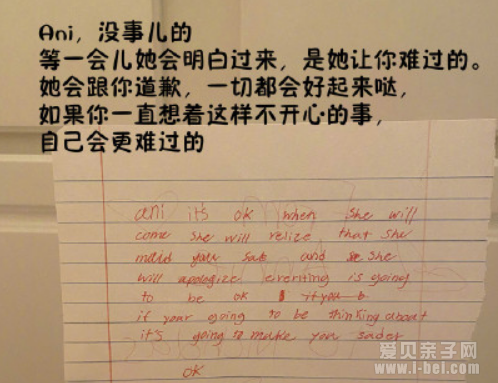 Ani，没事儿的
等一会儿她会明白过来，是她让你难过的。
她会跟你道歉，一切都会好起来哒，
如果你一直想着这样不开心的事，
自己会更难过的
ani it's ok when she will
come she will relize that she
made you sad and she
will apologize everthing is going
to be ok if you b
if your going to be thinking about
it's going to make you sader
OK
爱贝亲子网
www.i-bei.com